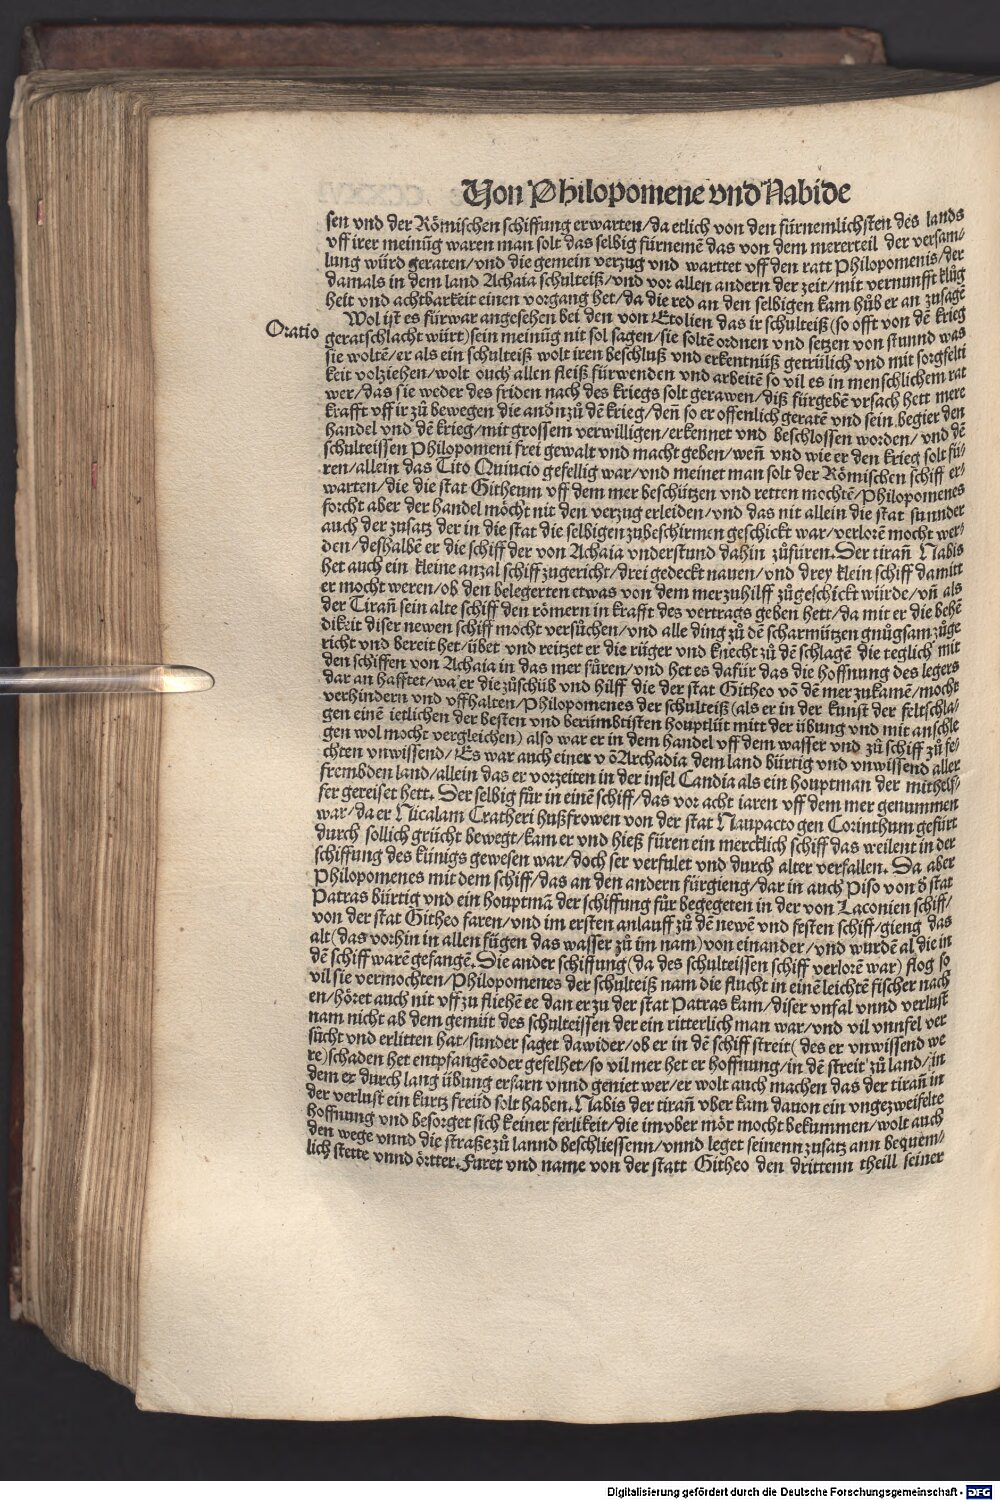 Von Philopomene vnd Nabide
sen vnd der Römischen schiffung erwarten/da etlich von den fürnemlichsten des lands
vff irer meinūg waren man solt das selbig fürnemē das von dem mererteil der versam-
lung würd geraten/vnd die gemein verzug vnd warttet vff den ratt Philopomenis/der
damals in dem land Achaia schulteiß/vnd vor allen andern der zeit/mit vernunfft klůg
heit vnd achtbarkeit einen vorgang het/da die red an den selbigen kam hůb er an zusagē
Wol ist es fürwar angesehen bei den von Etolien das ir schulteiß (so offt von dē krieg
Oratio
geratschlacht würt) sein meinūg nit sol sagen/sie soltē ordnen vnd setzen von stunnd was
sie woltē/er als ein schulteiß wolt iren beschluß vnd erkentnüß getrülich vnd mit sorgfelti
keit volziehen/wolt ouch allen fleiß fürwenden vnd arbeitē so vil es in menschlichem rat
wer/das sie weder des friden nach des kriegs solt gerawen/diß fürgebē vrsach hett mere
krafft vff ir zů bewegen die andn zů dē krieg/deñ so er offenlich geratē vnd sein begier den
handel vnd dē krieg/mit grossem verwilligen/erkennet vnd beschlossen worden/vnd dē
schulteissen Philopomeni frei gewalt vnd macht geben/weñ vnd wie er den krieg solt fü-
ren/allein das Tito Quincio gefellig war/vnd meinet man solt der Römischen schiff er-
warten/die die stat Githeum vff dem mer beschützen vnd retten mochtē/Philopomenes
forcht aber der handel möcht nit den verzug erleiden/vnd das nit allein die stat sunnder
auch der zusatz der in die stat die selbigen zubeschirmen geschickt war/verlorē mocht wer-
den/deshalbē er die schiff der von Achaia vnderstund dahin zůfüren. Der tirañ Nabis
het auch ein kleine anzal schiff zugericht/drei gedeckt nauen/vnd drey klein schiff damitt
er mocht weren/ob den belegerten etwas von dem mer zuhilff zůgeschickt würde/vñ als
der Tirañ sein alte schiff den römern in krafft des vertrags geben hett/da mit er die behē
dikeit diser newen schiff mocht versůchen/vnd alle ding zů dē scharmützen gnůgsam zůge
richt vnd bereit het/übet vnd reitzet er die rüger vnd knecht zů dē schlagē die teglich mit
den schiffen von Achaia in das mer fůren/vnd het es dafür das die hoffnung des legers
dar an hafftet/wa er die zůschüb vnd hilff die der stat Githeo vō dē mer zukamē/mocht
verhindern vnd vffhalten/Philopomenes der schulteiß (als er in der kunst der feltschla-
gen einē ietlichen der besten vnd berümbtisten houptlüt mitt der übung vnd mit anschle
gen wol mocht vergleichen) also war er in dem handel vff dem wasser vnd zů schiff zů fe-
chten vnwissend/Es war auch einer vō Archadia dem land bürtig vnd vnwissend aller
frembden land/allein das er vorzeiten in der insel Candia als ein houptman der mithelf-
fer gereiset hett. Der selbig fůr in einē schiff/das vor acht iaren vff dem mer genummen
war/da er Nicalam Cratheri hußfrowen von der stat Naupacto gen Corinthum gefürt
durch sollich grücht bewegt/kam er vnd hieß füren ein mercklich schiff das weilent in der
schiffung des künigs gewesen war/doch ser verfulet vnd durch alter verfallen. Da aber
Philopomenes mit dem schiff/das an den andern fürgieng/dar in auch Piso von d stat
Patras bürtig vnd ein houptmā der schiffung fůr begegeten in der von Laconien schiff/
von der stat Githeo faren/vnd im ersten anlauff zů dē newē vnd festen schiff/gieng das
alt (das vorhin in allen fügen das wasser zů im nam) von einander/vnd wurdē al die in
dē schiff warē gefangē. Die ander schiffung (da des schulteissen schiff verlorē war) flog so
vil sie vermochten/Philopomenes der schulteiß nam die flucht in einē leichtē fischer nach
en/höret auch nit vff zu fliehē ee dan er zu der stat Patras kam/diser vnfal vnnd verlust
nam nicht ab dem gemüt des schulteissen der ein ritterlich man war/vnd vil vnnfel ver
sůcht vnd erlitten hat/sunder saget dawider/ob er in dē schiff streit (des er vnwissend we
re) schaden het entpfangē oder gefelhet/so vil mer het er hoffnung/in dē streit zů land/in
dem er durch lang übung erfarn vnnd geniet wer/er wolt auch machen das der tirañ in
der verlust ein kurtz freüd solt haben. Nabis der tirañ vber kam dauon ein vngezweifelte
hoffnung vnd besorget sich keiner ferlikeit/die im vber mör mocht bekummen/wolt auch
den wege vnnd die straße zů lannd beschliessenn/vnnd leget seinenn zusatz ann bequem-
lich stette vnnd örtter. Furet vnd name von der statt Githeo den drittenn theill seiner
Digitalisierung gefördert durch die Deutsche Forschungsgemeinschaft - DFG